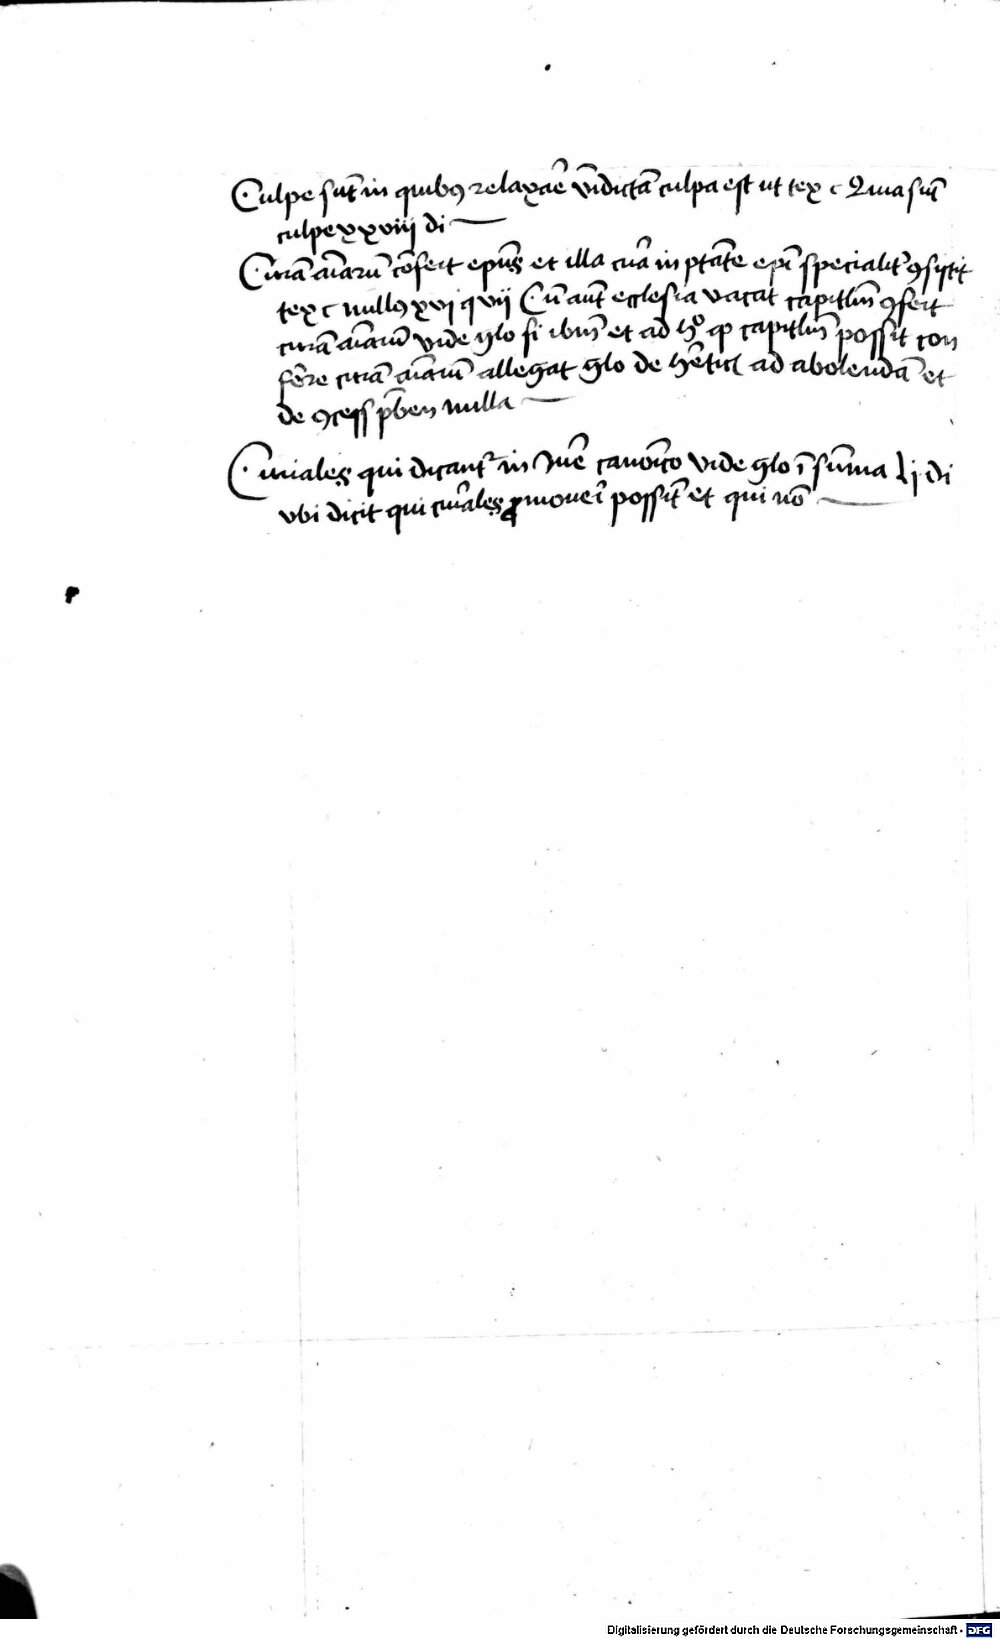 Culpe sūt in quibꝯ relaxaē vīdictā culpa est ut tex c Qua sūt
culpe xxviij di
Curā aīarū cōfert epūs et illa cura in ptāte epī specialit͛ ꝯsistit
tex c nullꝯ xvi q vij Cū aūt ecclesia vacat capitlm̄ ꝯfert
curā aīarū vide glo fi ibm̄ et ad hº ꝙ capitlm̄ possit con
ferre curā aīarū allegat glo de heretic ad abolendā et
de ꝯcess p̄ben nulla
Curiales qui dicant͛ in Jure canoīco vide glo ī sūma Lj di
vbi dicit qui curiales ꝓmoueri possīt et qui nō
Digitalisierung gefördert durch die Deutsche Forschungsgemeinschaft - DFG